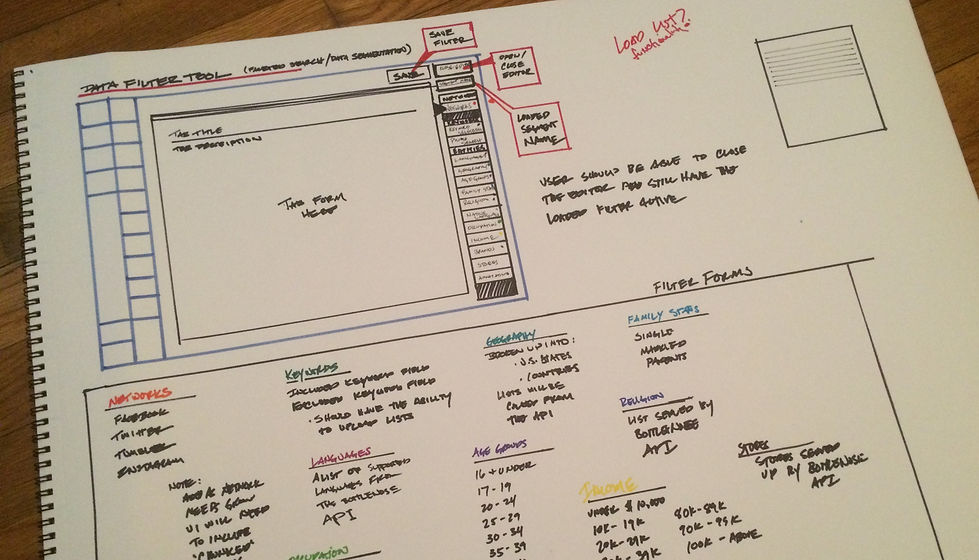 DATA FILTER TOOL (FACETED SEARCH/DATA SEGMENTATION)
SAVE FILTER
SAVE
OPEN/
CLOSE
EDITOR
LOADED
SEGMENT
NAME
LOAD LIST?
functionality?
TAB TITLE
TAB DESCRIPTION
TAB FORM
HERE
NETWORKS
ENTITIES
LANGUAGES
GEOGRAPHY
AGE GROUPS
FAMILY STATS
RELIGION
OCCUPATION
INCOME
BRANDS
STORES
USER SHOULD BE ABLE TO CLOSE
THE EDITOR AND STILL HAVE THE
LOADED FILTER ACTIVE
FILTER FORMS
NETWORKS
FACEBOOK
TWITTER
TUMBLR
INSTAGRAM
NOTE:
AS NETWORK
NEEDS GROW
UI WILL NEED
TO INCLUDE
KEYWORDS
INCLUDED KEYWORD FIELD
EXCLUDED KEYWORD FIELD
· SHOULD HAVE THE ABILITY
TO UPLOAD LISTS
LANGUAGES
A LIST OF SUPPORTED
LANGUAGES FROM
THE BOTTLENOSE
API
OCCUPATION
GEOGRAPHY
BROKEN UP INTO:
· U.S. STATES
· COUNTRIES
LISTS WILL BE
CALLED FROM
THE API
AGE GROUPS
16 + UNDER
17 - 19
20 - 24
25 - 29
30 - 34
35 - 39
FAMILY STATS
SINGLE
MARRIED
PARENTS
RELIGION
LIST SERVED BY
BOTTLENOSE
API
INCOME
UNDER $10,000
10K - 19K
20K - 29K
80K - 89K
90K - 99K
100K - ABOVE
STORES
STORES SERVED
UP BY BOTTLENOSE
API